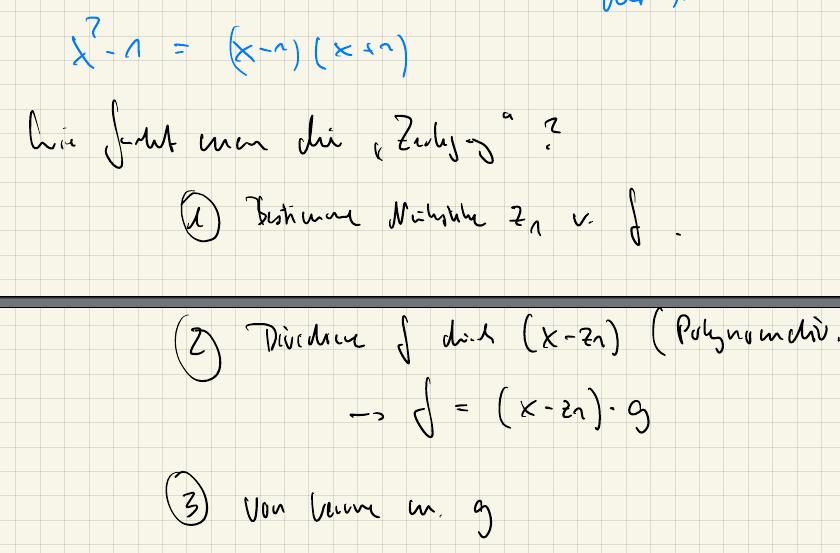 x² - 1 = (x-1) (x+1)
Wie findet man die „Zerlegung“ ?
① Bestimme Nullstelle z₁ v. f .
② Dividiere f durch (x-z₁) (Polynomdiv.
→ f = (x-z₁) · g
③ Von vorne m. g